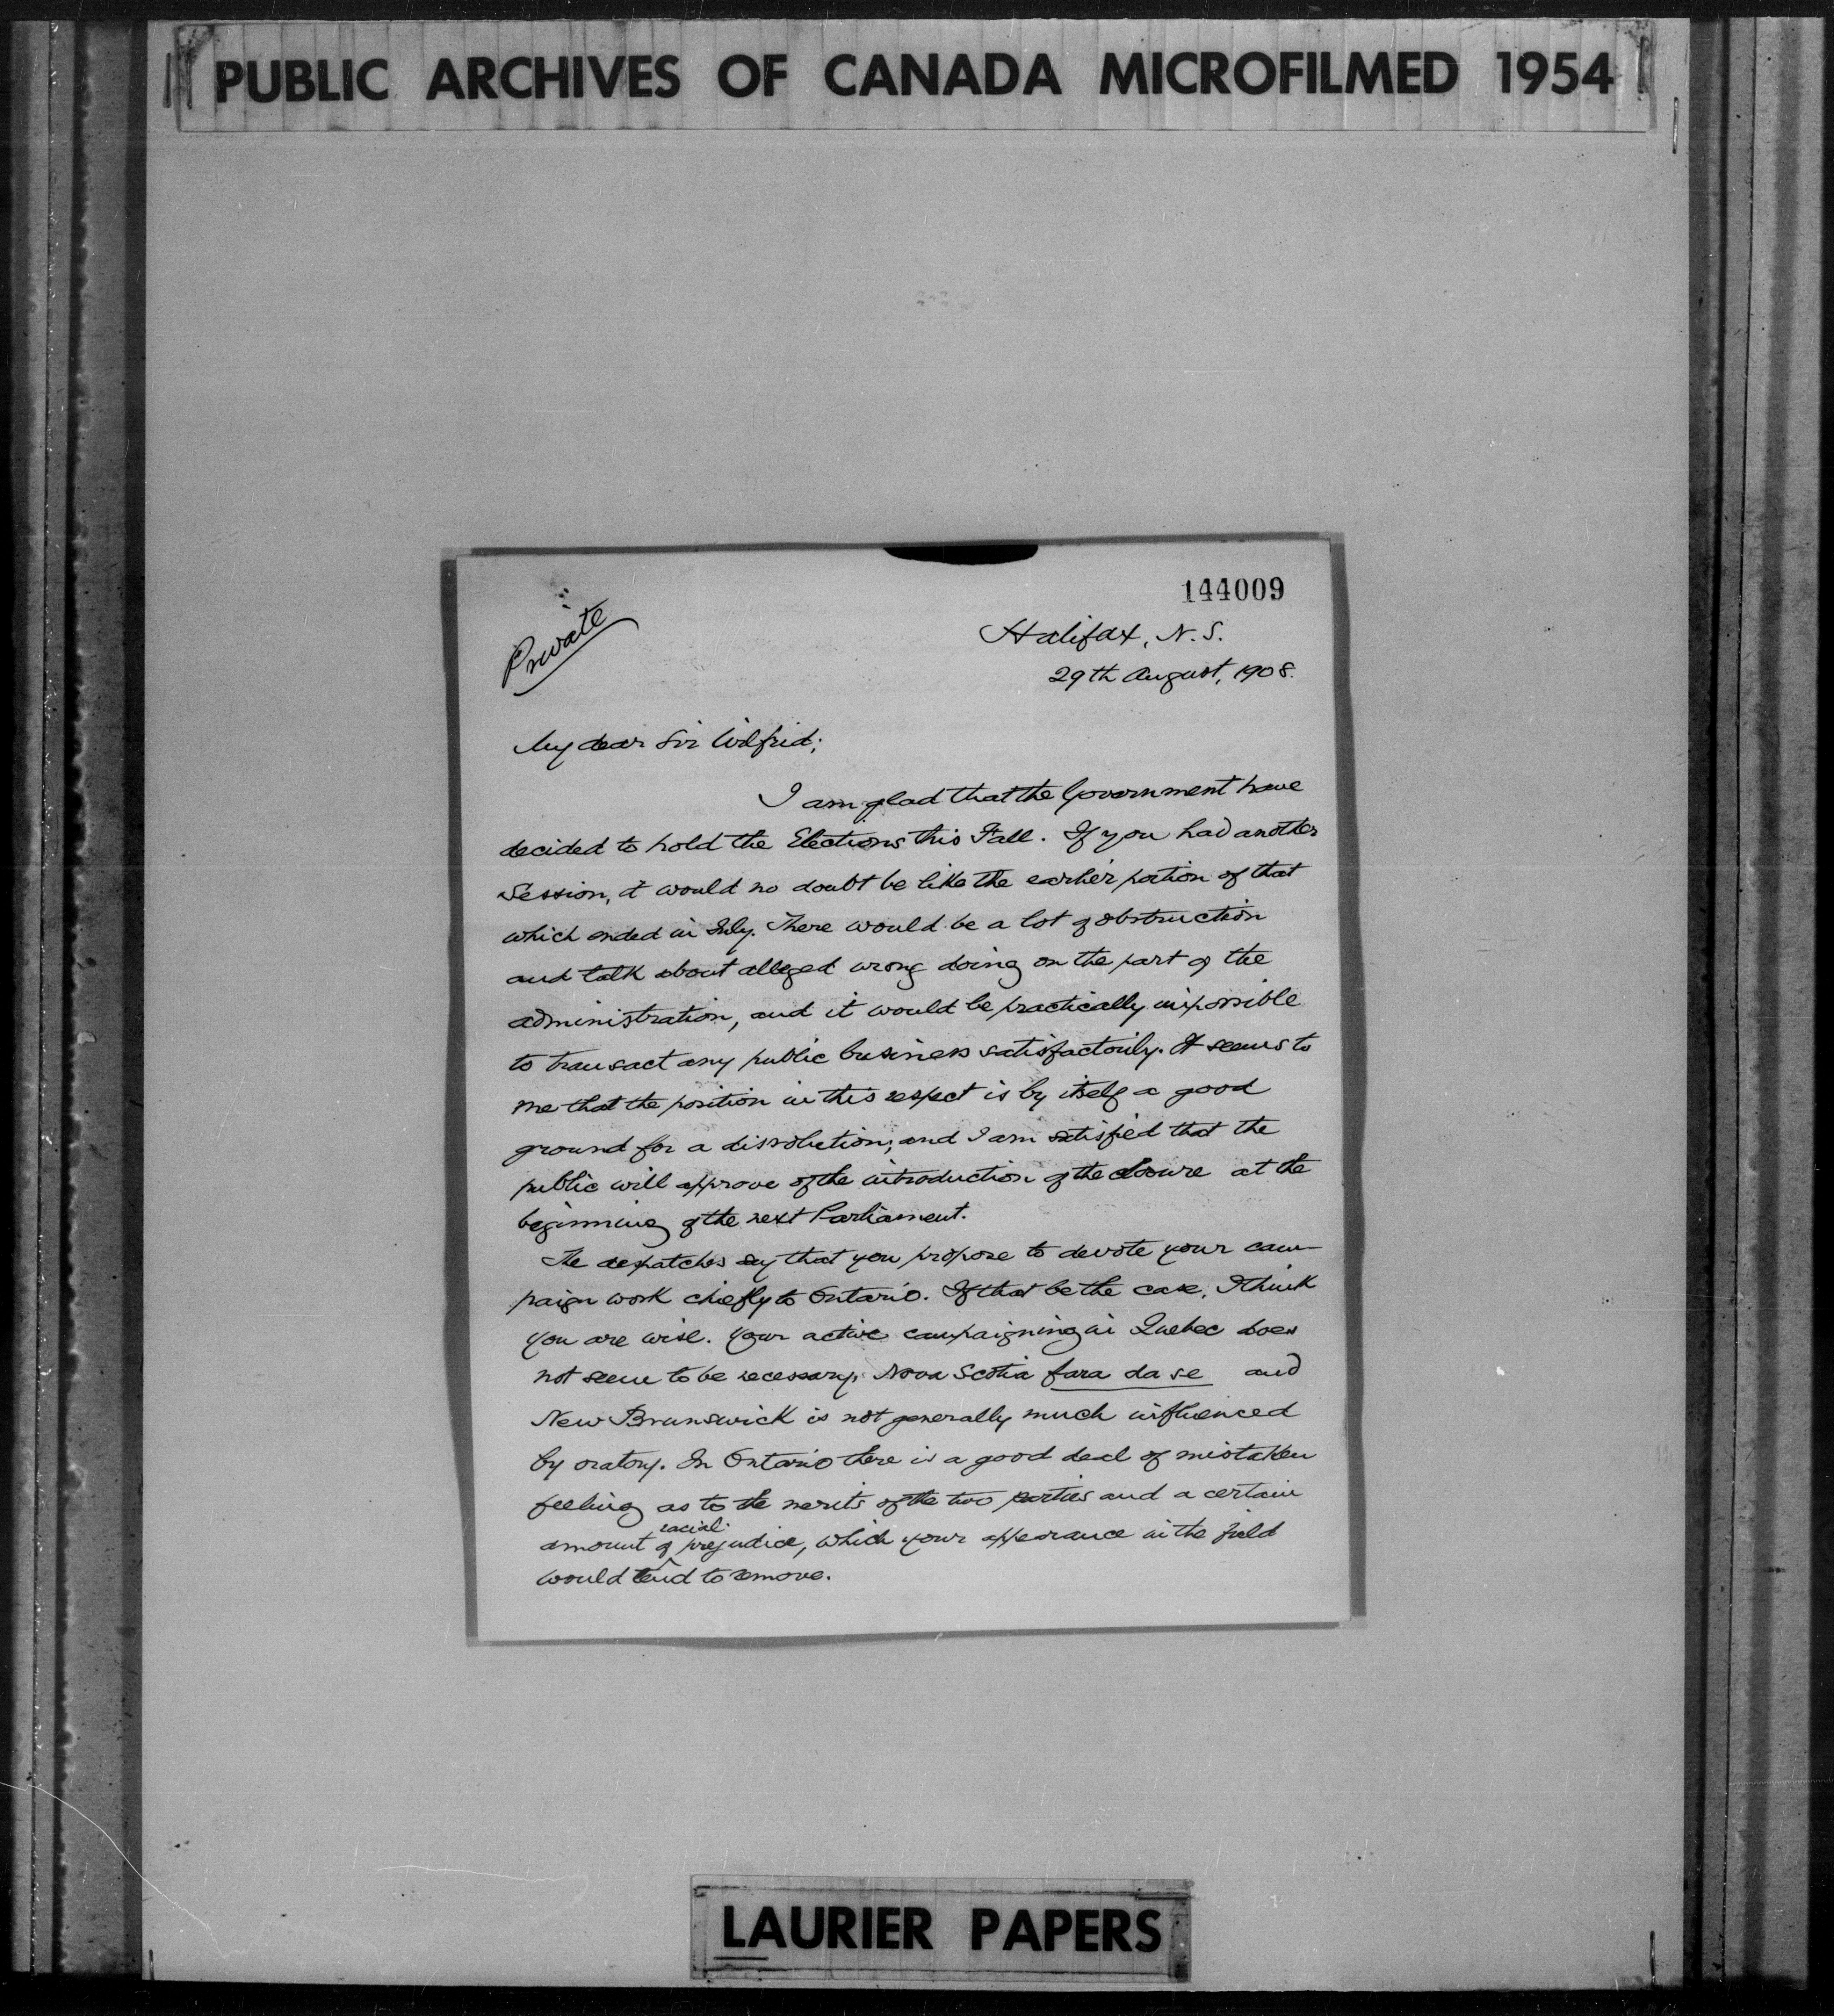 PUBLIC ARCHIVES OF CANADA MICROFILMED 1954
144009
Private
Halifax, N.S.
29th August, 1908.
My dear Sir Wilfrid;
I am glad that the Government have
decided to hold the Elections this Fall. If you had another
Session, it would no doubt be like the earlier portion of that
which ended in July. There would be a lot of obstruction
and talk about alleged wrong doing on the part of the
administration, and it would be practically impossible
to transact any public business satisfactorily. It seems to
me that the position in this respect is by itself a good
ground for a dissolution; and I am satisfied that the
public will approve of the introduction of the closure at the
beginning of the next Parliament.
The despatches say that you propose to devote your cam-
paign work chiefly to Ontario. If that be the case, I think
you are wise. Your active campaigning in Quebec does
not seem to be necessary, Nova Scotia fara da se and
New Brunswick is not generally much influenced
by oratory. In Ontario there is a good deal of mistaken
feeling as to the merits of the two parties and a certain
amount of racial prejudice, which your appearance in the field
would tend to remove.
LAURIER PAPERS